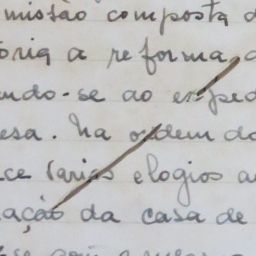 missão composta d
ória a reforma, d
endo-se ao exped
esa. Na ordem do
ce varios elogios a
ação da casa de